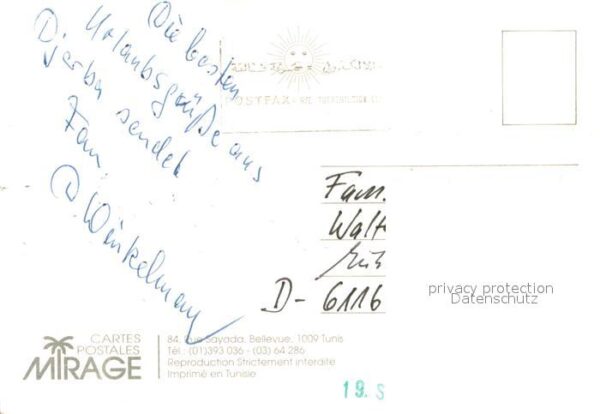 Die besten
Urlaubsgrüße aus
Djerba sendet
Fam.
Winkelmann
POSTFAX
Fam.
Walt
D-6116
privacy protection
Datenschutz
CARTES
POSTALES
MIRAGE
84, Rue Sayada, Bellevue, 1009 Tunis
Tél.: (01)393 036 - (03) 64 286
Reproduction Strictement interdite
Imprimé en Tunisie
19. S